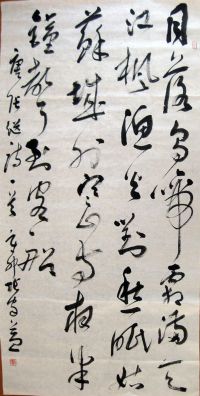 月落烏啼霜滿天
江楓漁火對愁眠姑
蘇城外寒山寺夜半
鐘聲到客船
唐張继詩一首辛卯